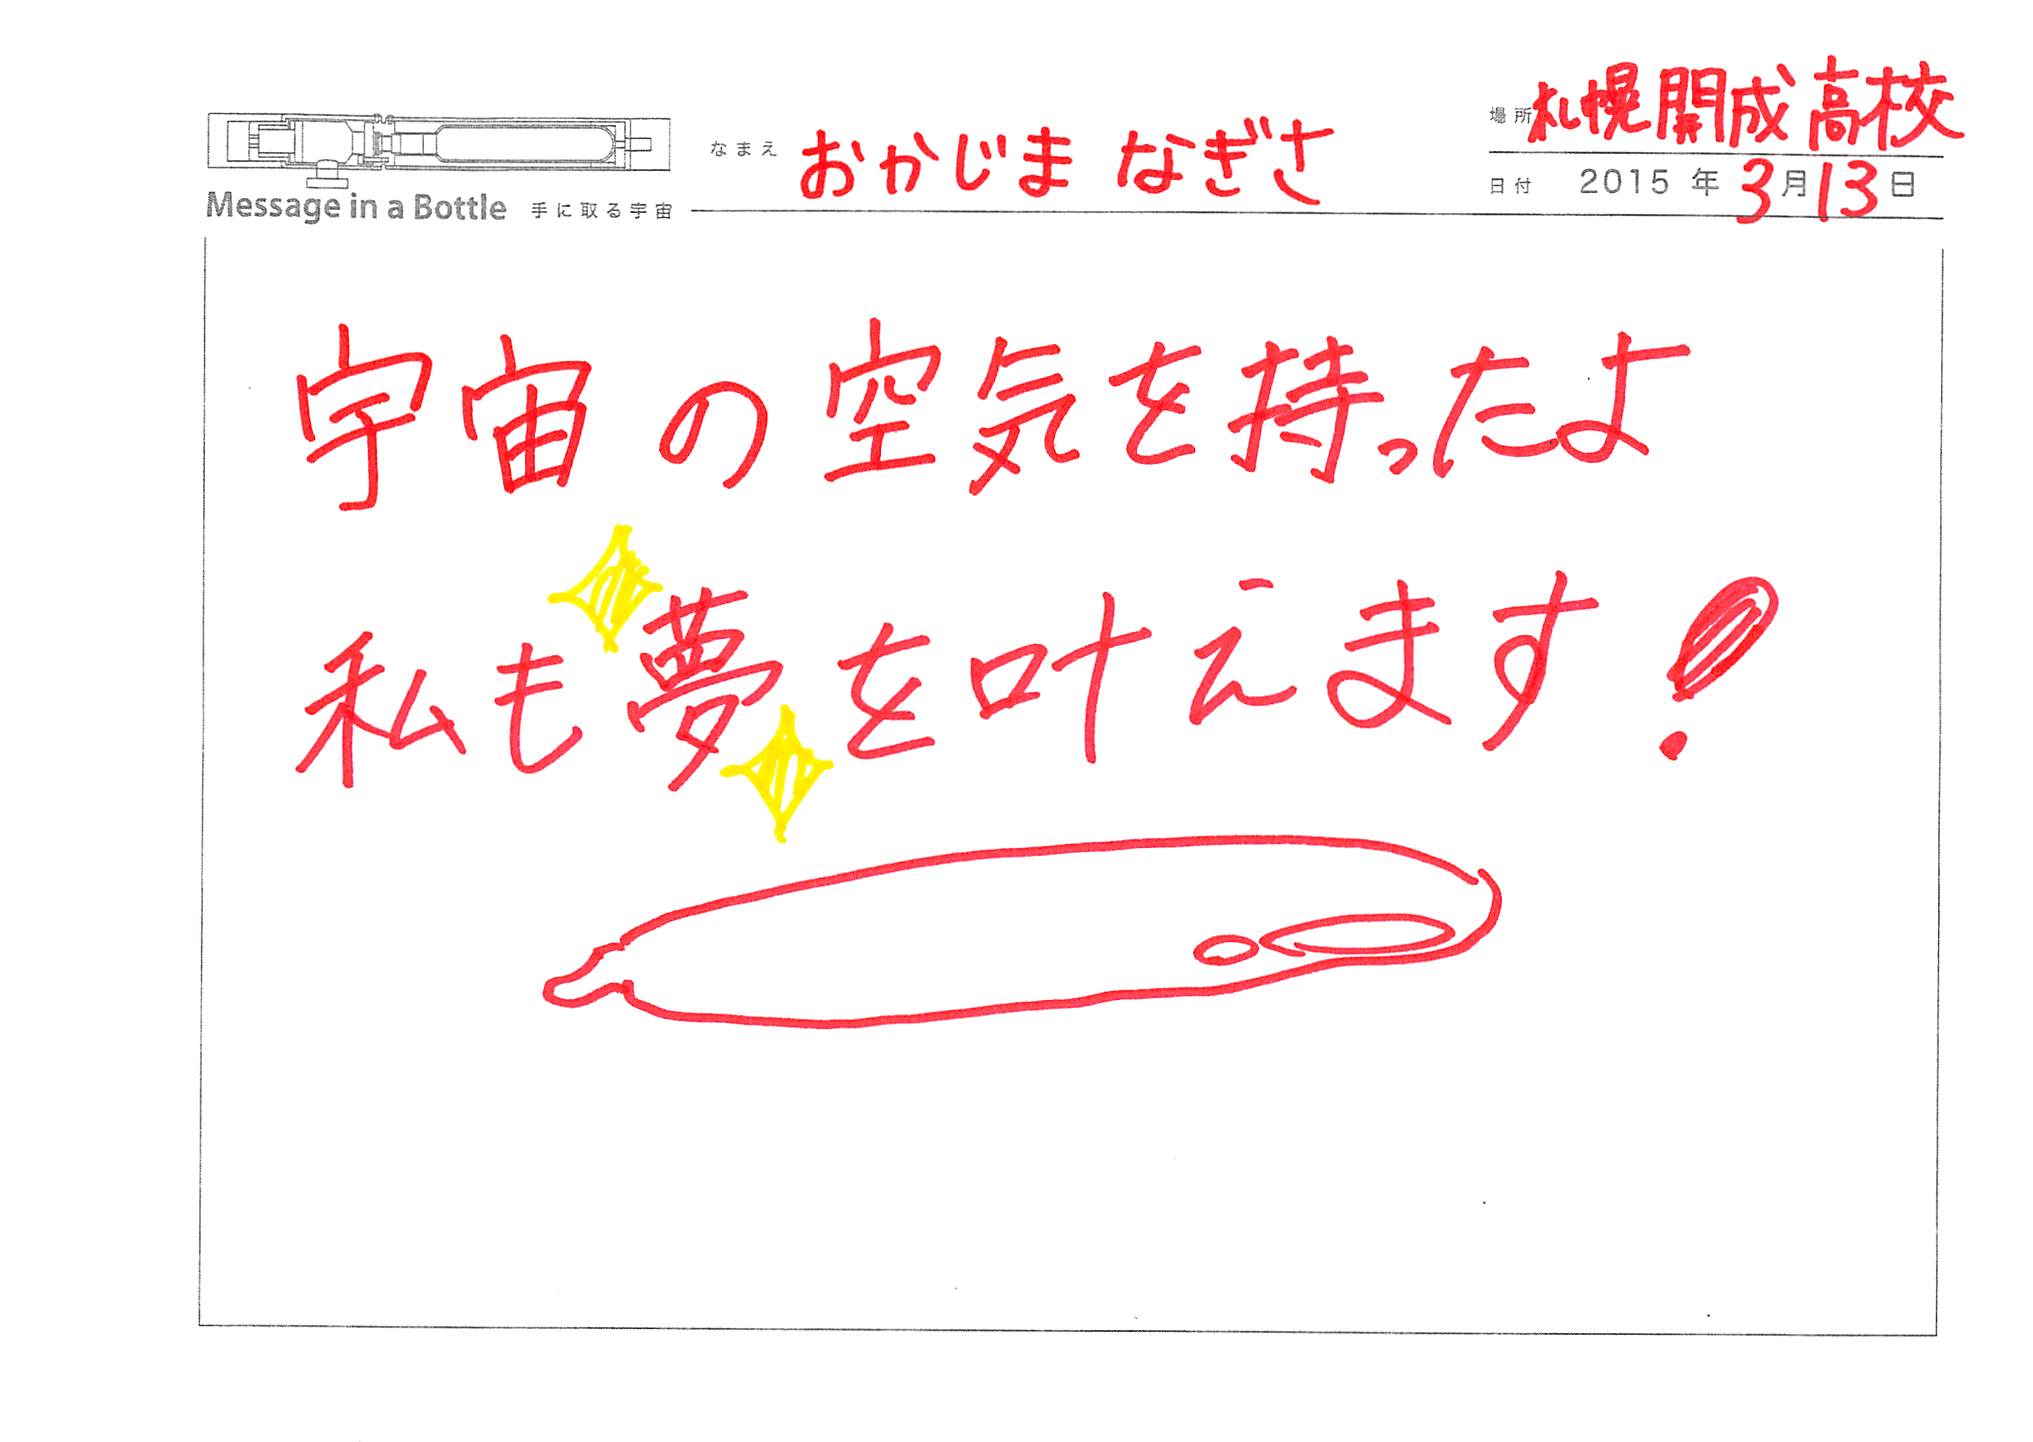 場所 札幌開成高校
なまえ おかじま なぎさ
日付 2015 年 3月13日
Message in a Bottle 手に取る宇宙
宇宙の空気を持ったよ
私も夢を叶えます!